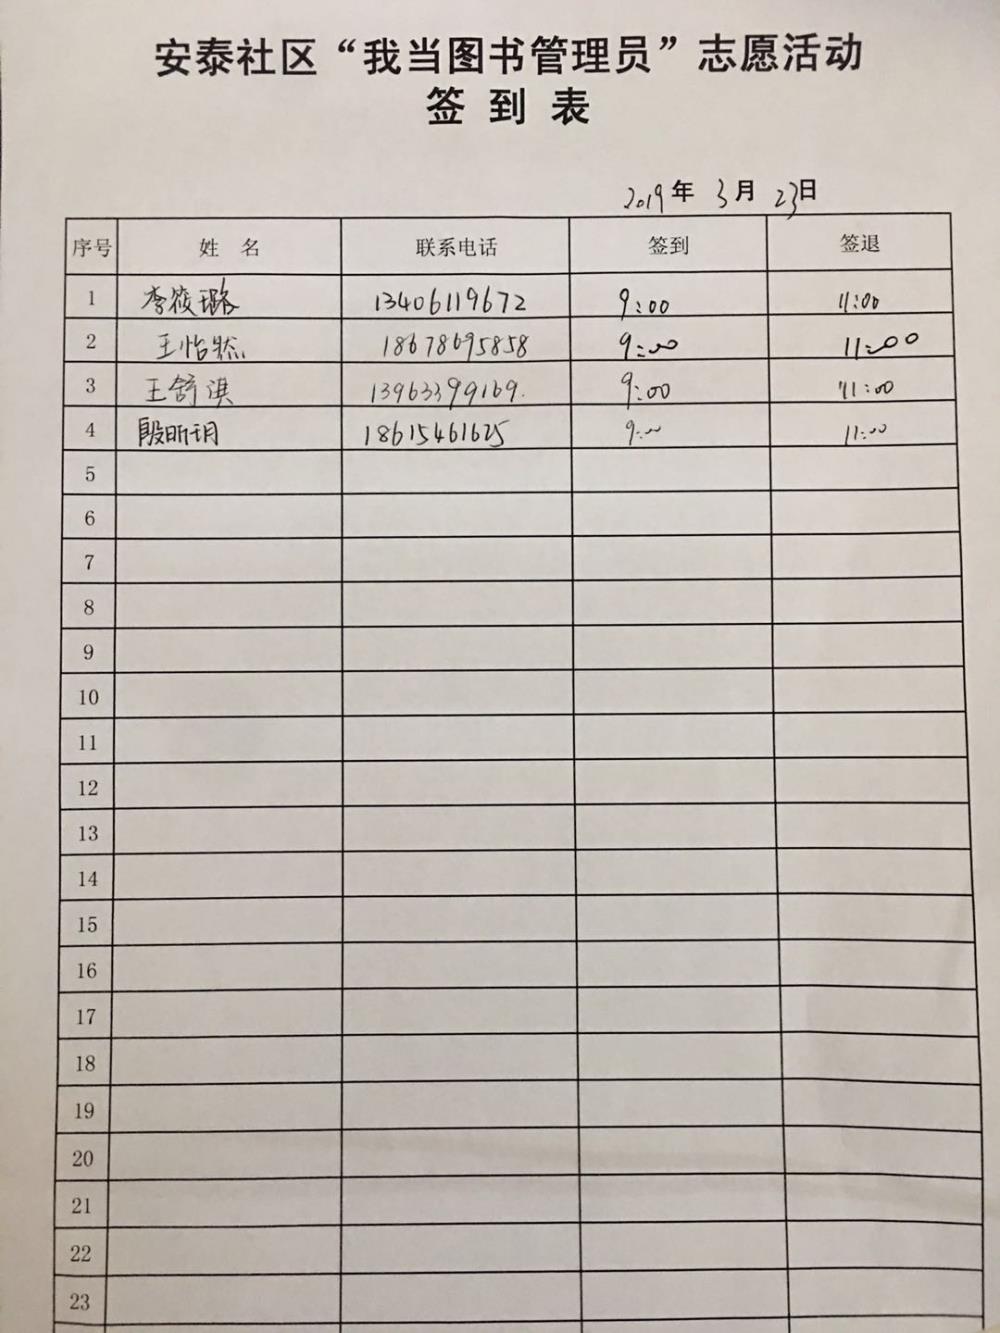 安泰社区“我当图书管理员”志愿活动
签 到 表
2019年 3月 23日
序号 姓 名 联系电话 签到 签退
1 李筱璐 13406119672 9:00 11:00
2 王怡然 18678695858 9:00 11:00
3 王舒淇 13963399169. 9:00 11:00
4 殷昕玥 18615461625 9:00 11:00
5
6
7
8
9
10
11
12
13
14
15
16
17
18
19
20
21
22
23